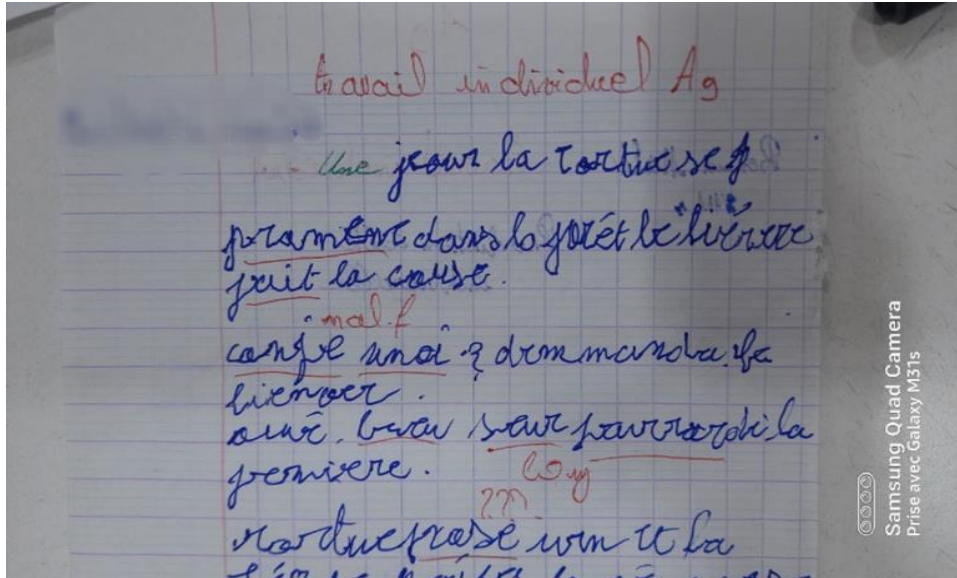 travail individuel Ag
Une jour la tortue se p
prament dans la forêt le lièrere
fait la couse.
mal. f
confe unoi ? demmanda. fa
lienver.
ouè. beau sour pourrardi la
premiere. Coy
???
tortue prase um it fa
Samsung Quad Camera
Prise avec Galaxy M31s